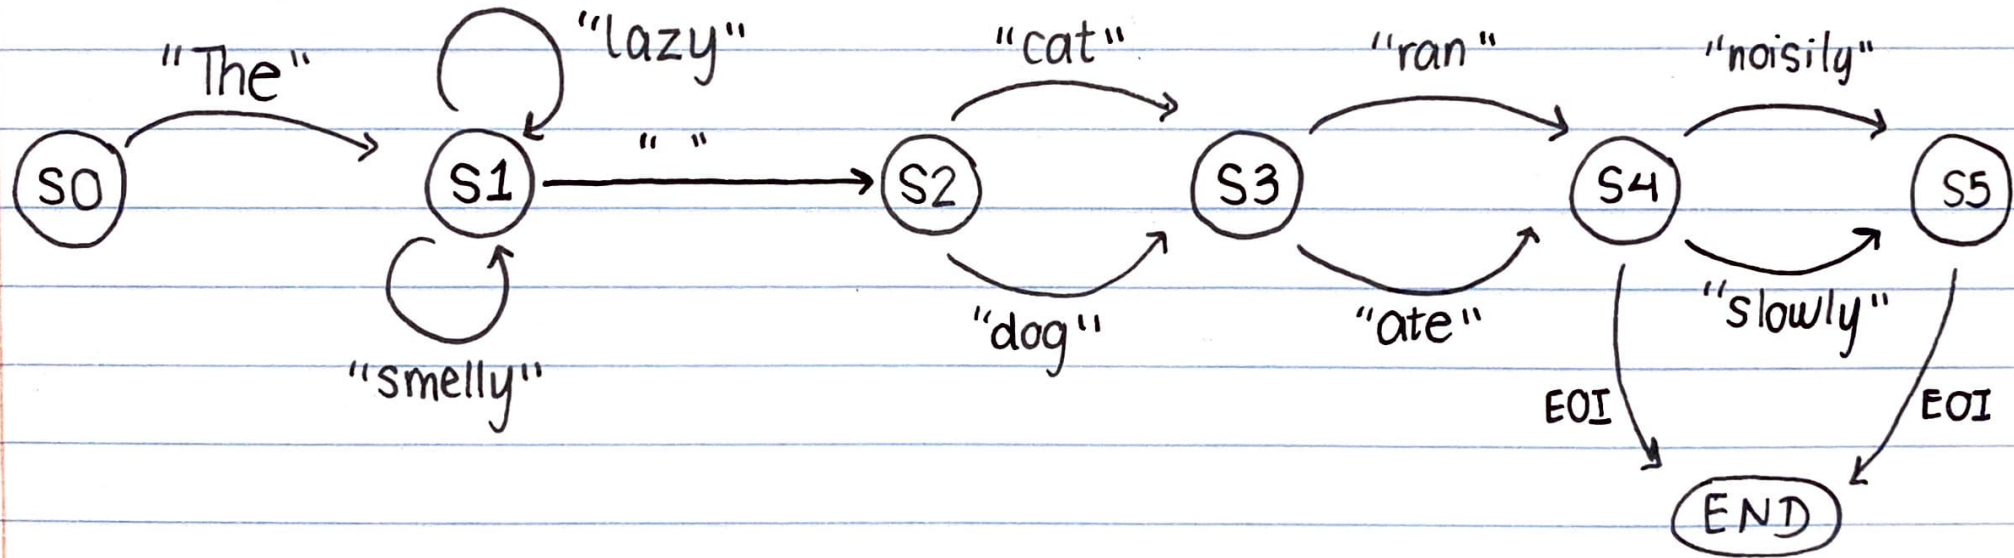 "The"
"lazy"
"cat"
"ran"
"noisily"
" "
S0
S1
S2
S3
S4
S5
"smelly"
"dog"
"ate"
"slowly"
EOI
EOI
END